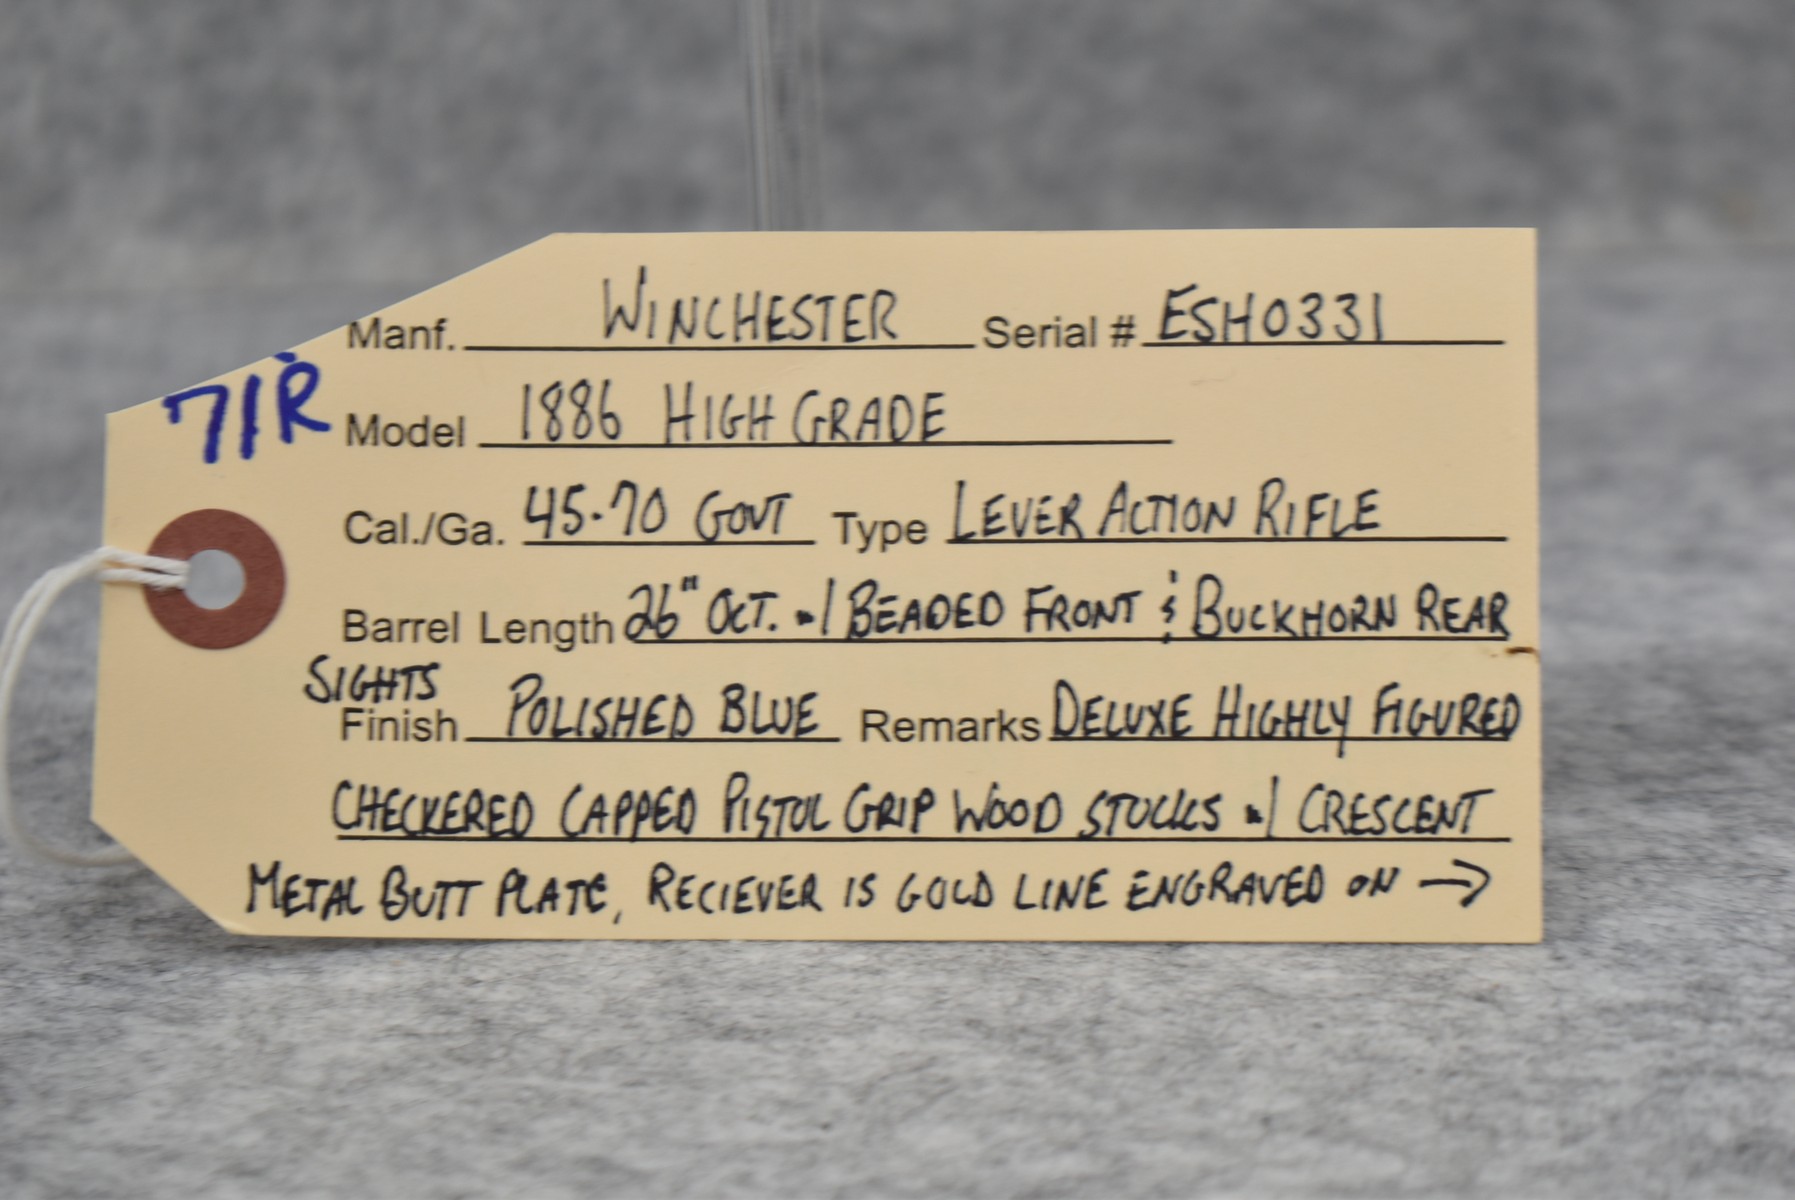 Manf. WINCHESTER Serial # ESH0331
71R
Model 1886 HIGH GRADE
Cal./Ga. 45-70 GOVT Type LEVER ACTION RIFLE
Barrel Length 26" OCT. w/ BEADED FRONT & BUCKHORN REAR
SIGHTS
Finish POLISHED BLUE Remarks DELUXE HIGHLY FIGURED
CHECKERED CAPPED PISTOL GRIP WOOD STOCKS w/ CRESCENT
METAL BUTT PLATE, RECIEVER IS GOLD LINE ENGRAVED ON →